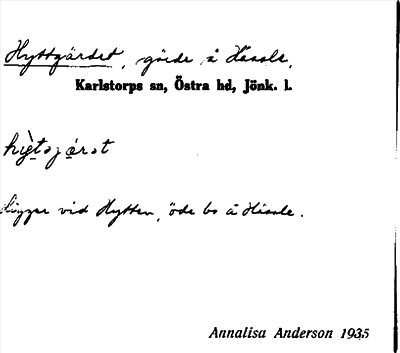 Hyttgärdet, gärde å Hässle,
Karlstorps sn, Östra hd, Jönk. l.
Ligger vid Hytten, öde bs å Hässle.
Annalisa Anderson 1935